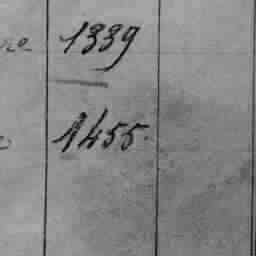 1339
1455.